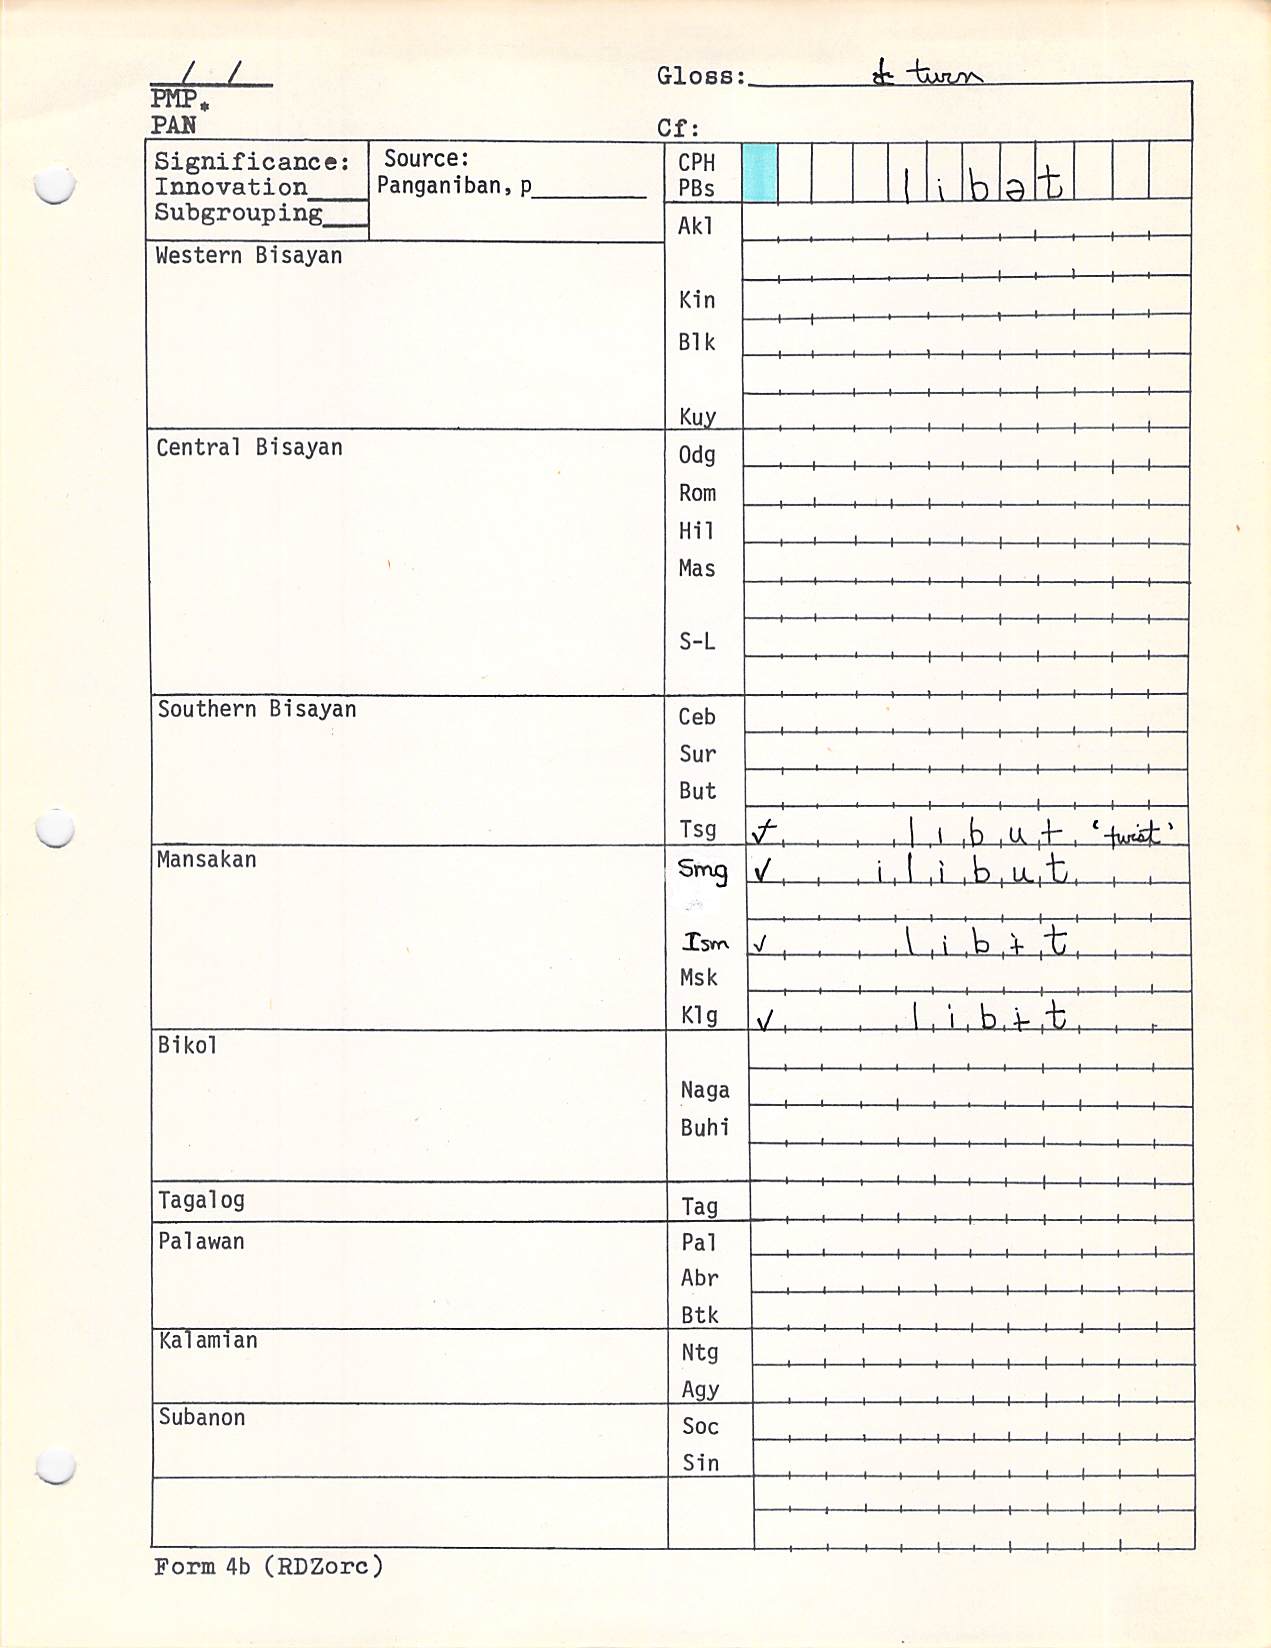 / /
PMP*
PAN
Gloss: turn
Cf:
Significance:
Innovation____
Subgrouping___
Source:
Panganiban, p________
CPH
PBs libət
Akl
Western Bisayan
Kin
Blk
Kuy
Central Bisayan
Odg
Rom
Hil
Mas
S-L
Southern Bisayan
Ceb
Sur
But
Tsg ✓ libut 'twist'
Mansakan
Smg ✓ ilibut
Ism ✓ libɨt
Msk
Klg ✓ libɨt
Bikol
Naga
Buhi
Tagalog
Tag
Palawan
Pal
Abr
Btk
Kalamian
Ntg
Agy
Subanon
Soc
Sin
Form 4b (RDZorc)